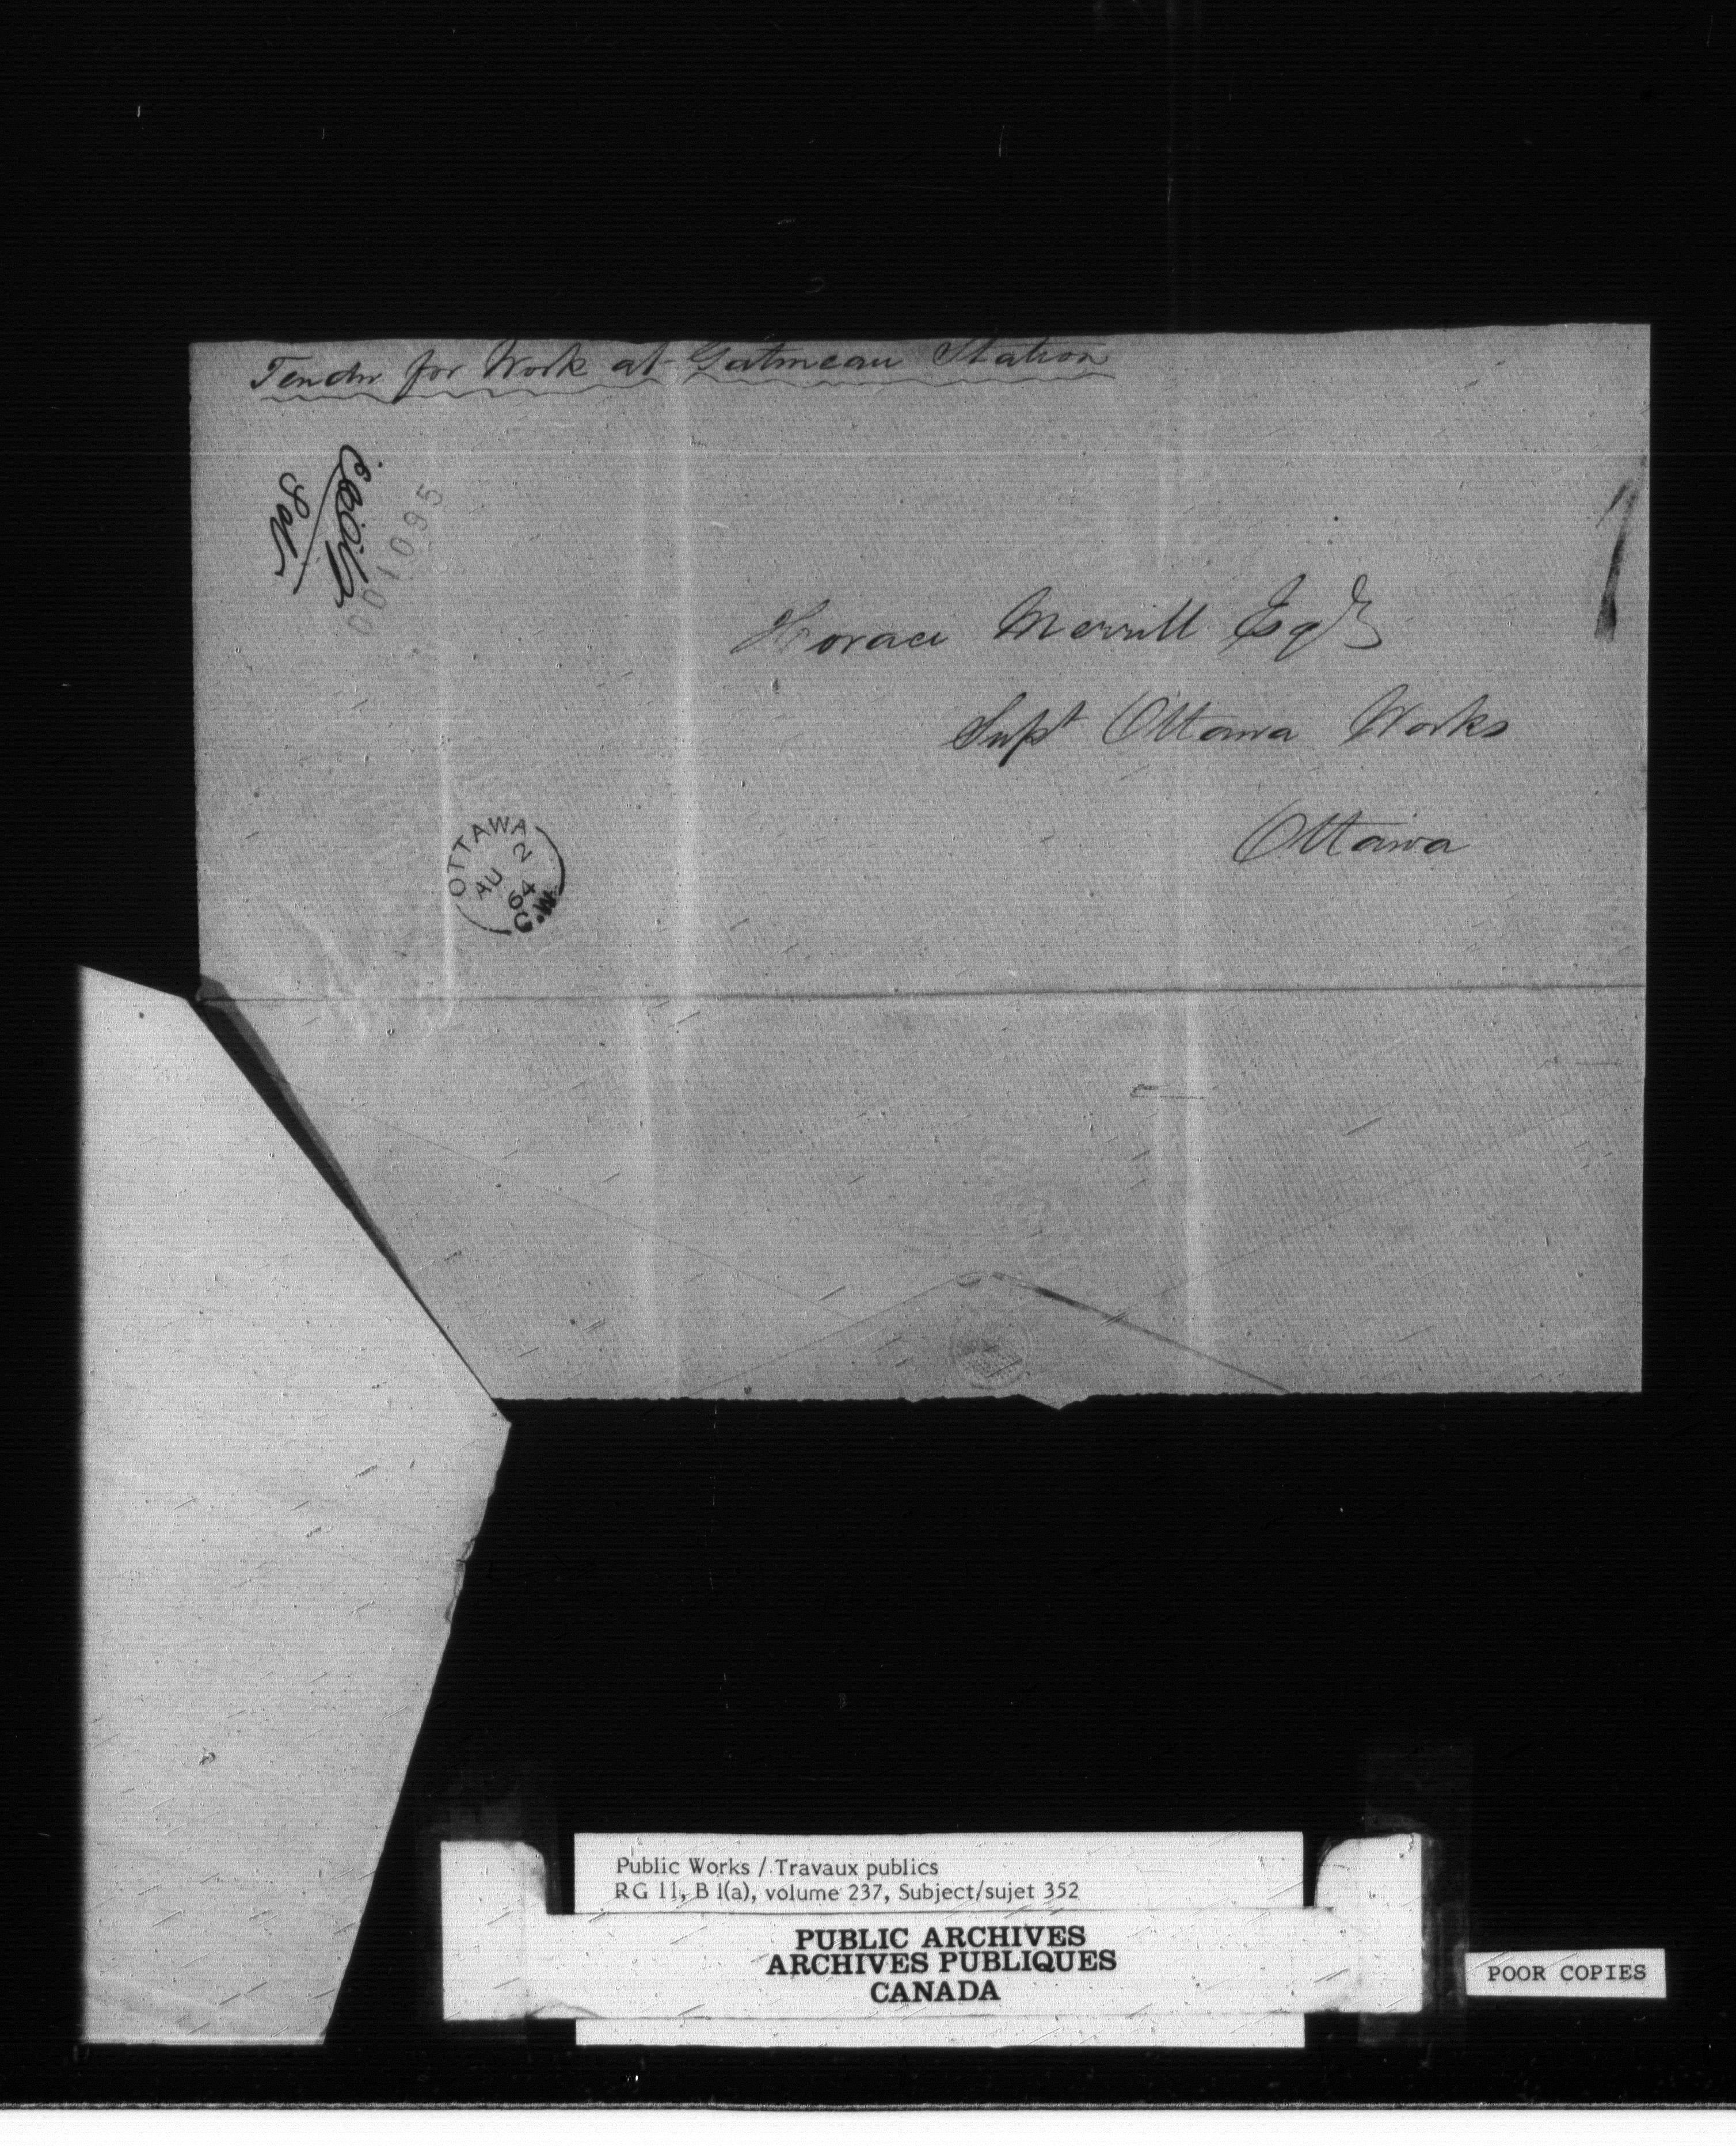 Tender for Work at Gatineau Station
001095
Horace Merrill Esqr
Supt Ottawa Works
Ottawa
OTTAWA
AU 2
64
C.W.
Public Works / Travaux publics
RG 11, B 1(a), volume 237, Subject/sujet 352
PUBLIC ARCHIVES
ARCHIVES PUBLIQUES
CANADA
POOR COPIES